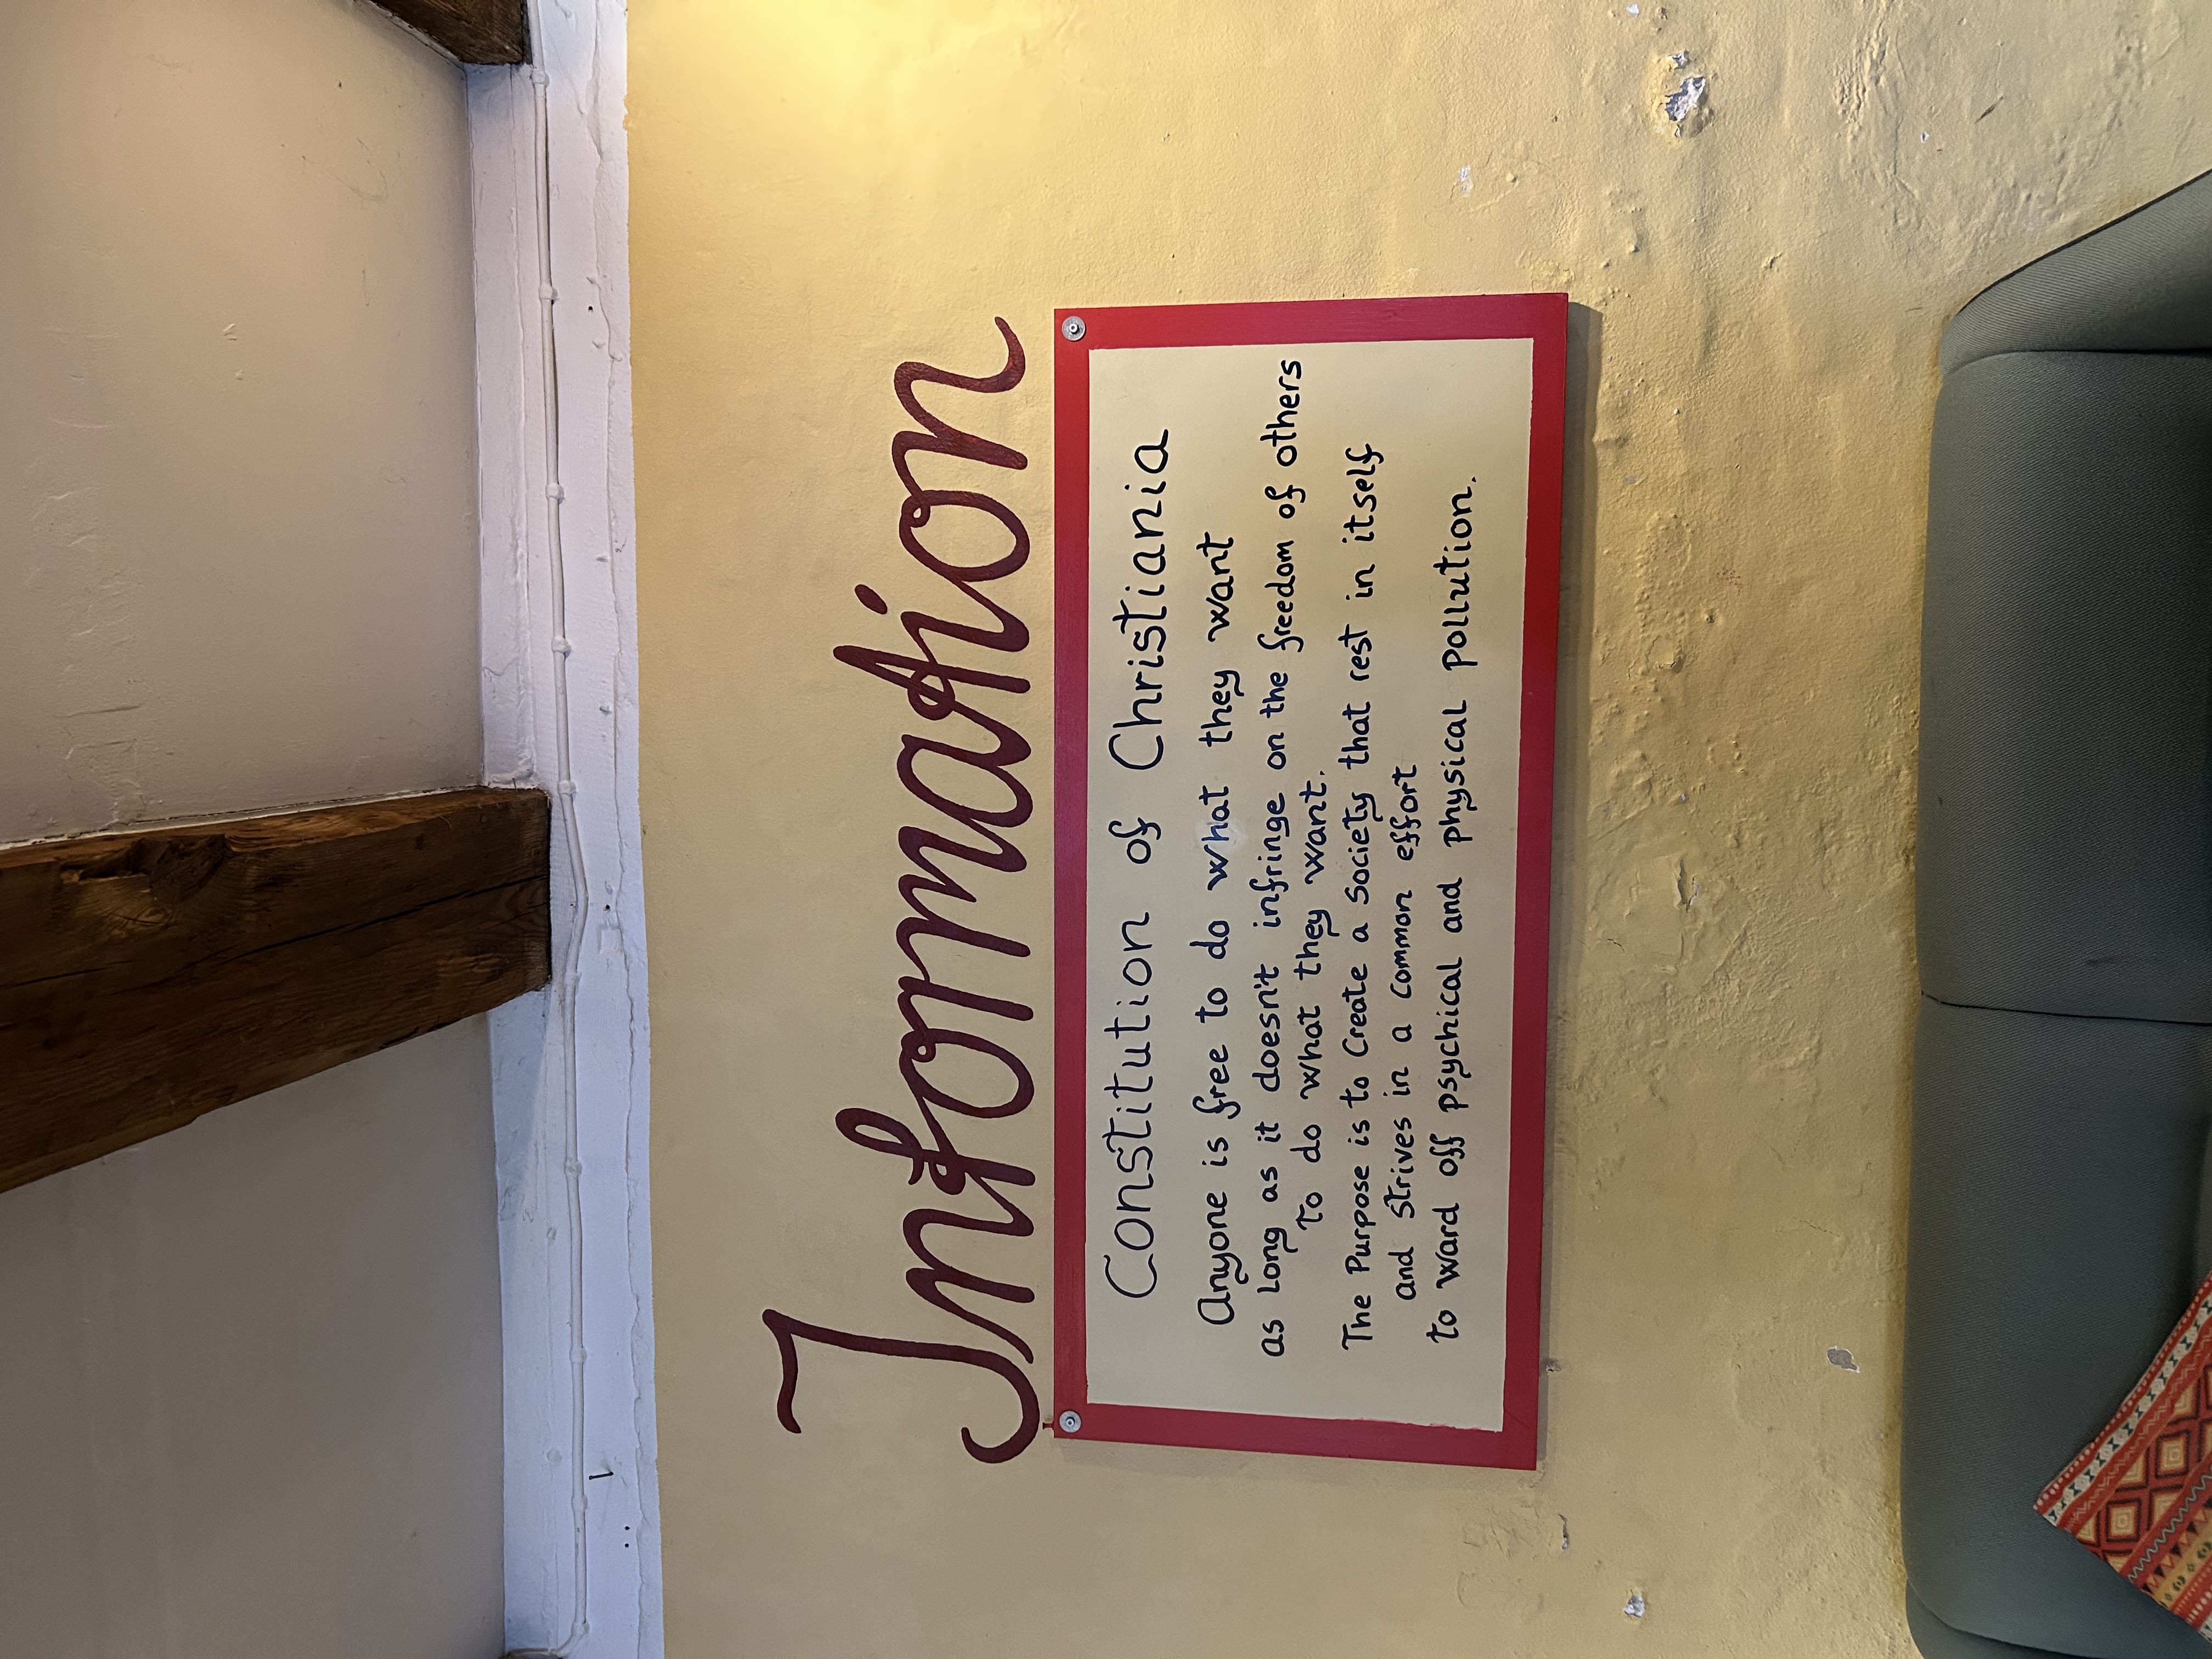 Information
Constitution of Christiania
Anyone is free to do what they want
as long as it doesn't infringe on the freedom of others
to do what they want.
The Purpose is to Create a Society that rest in itself
and strives in a common effort
to ward off psychical and physical pollution.